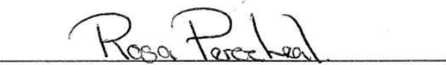 Rosa Perecheal